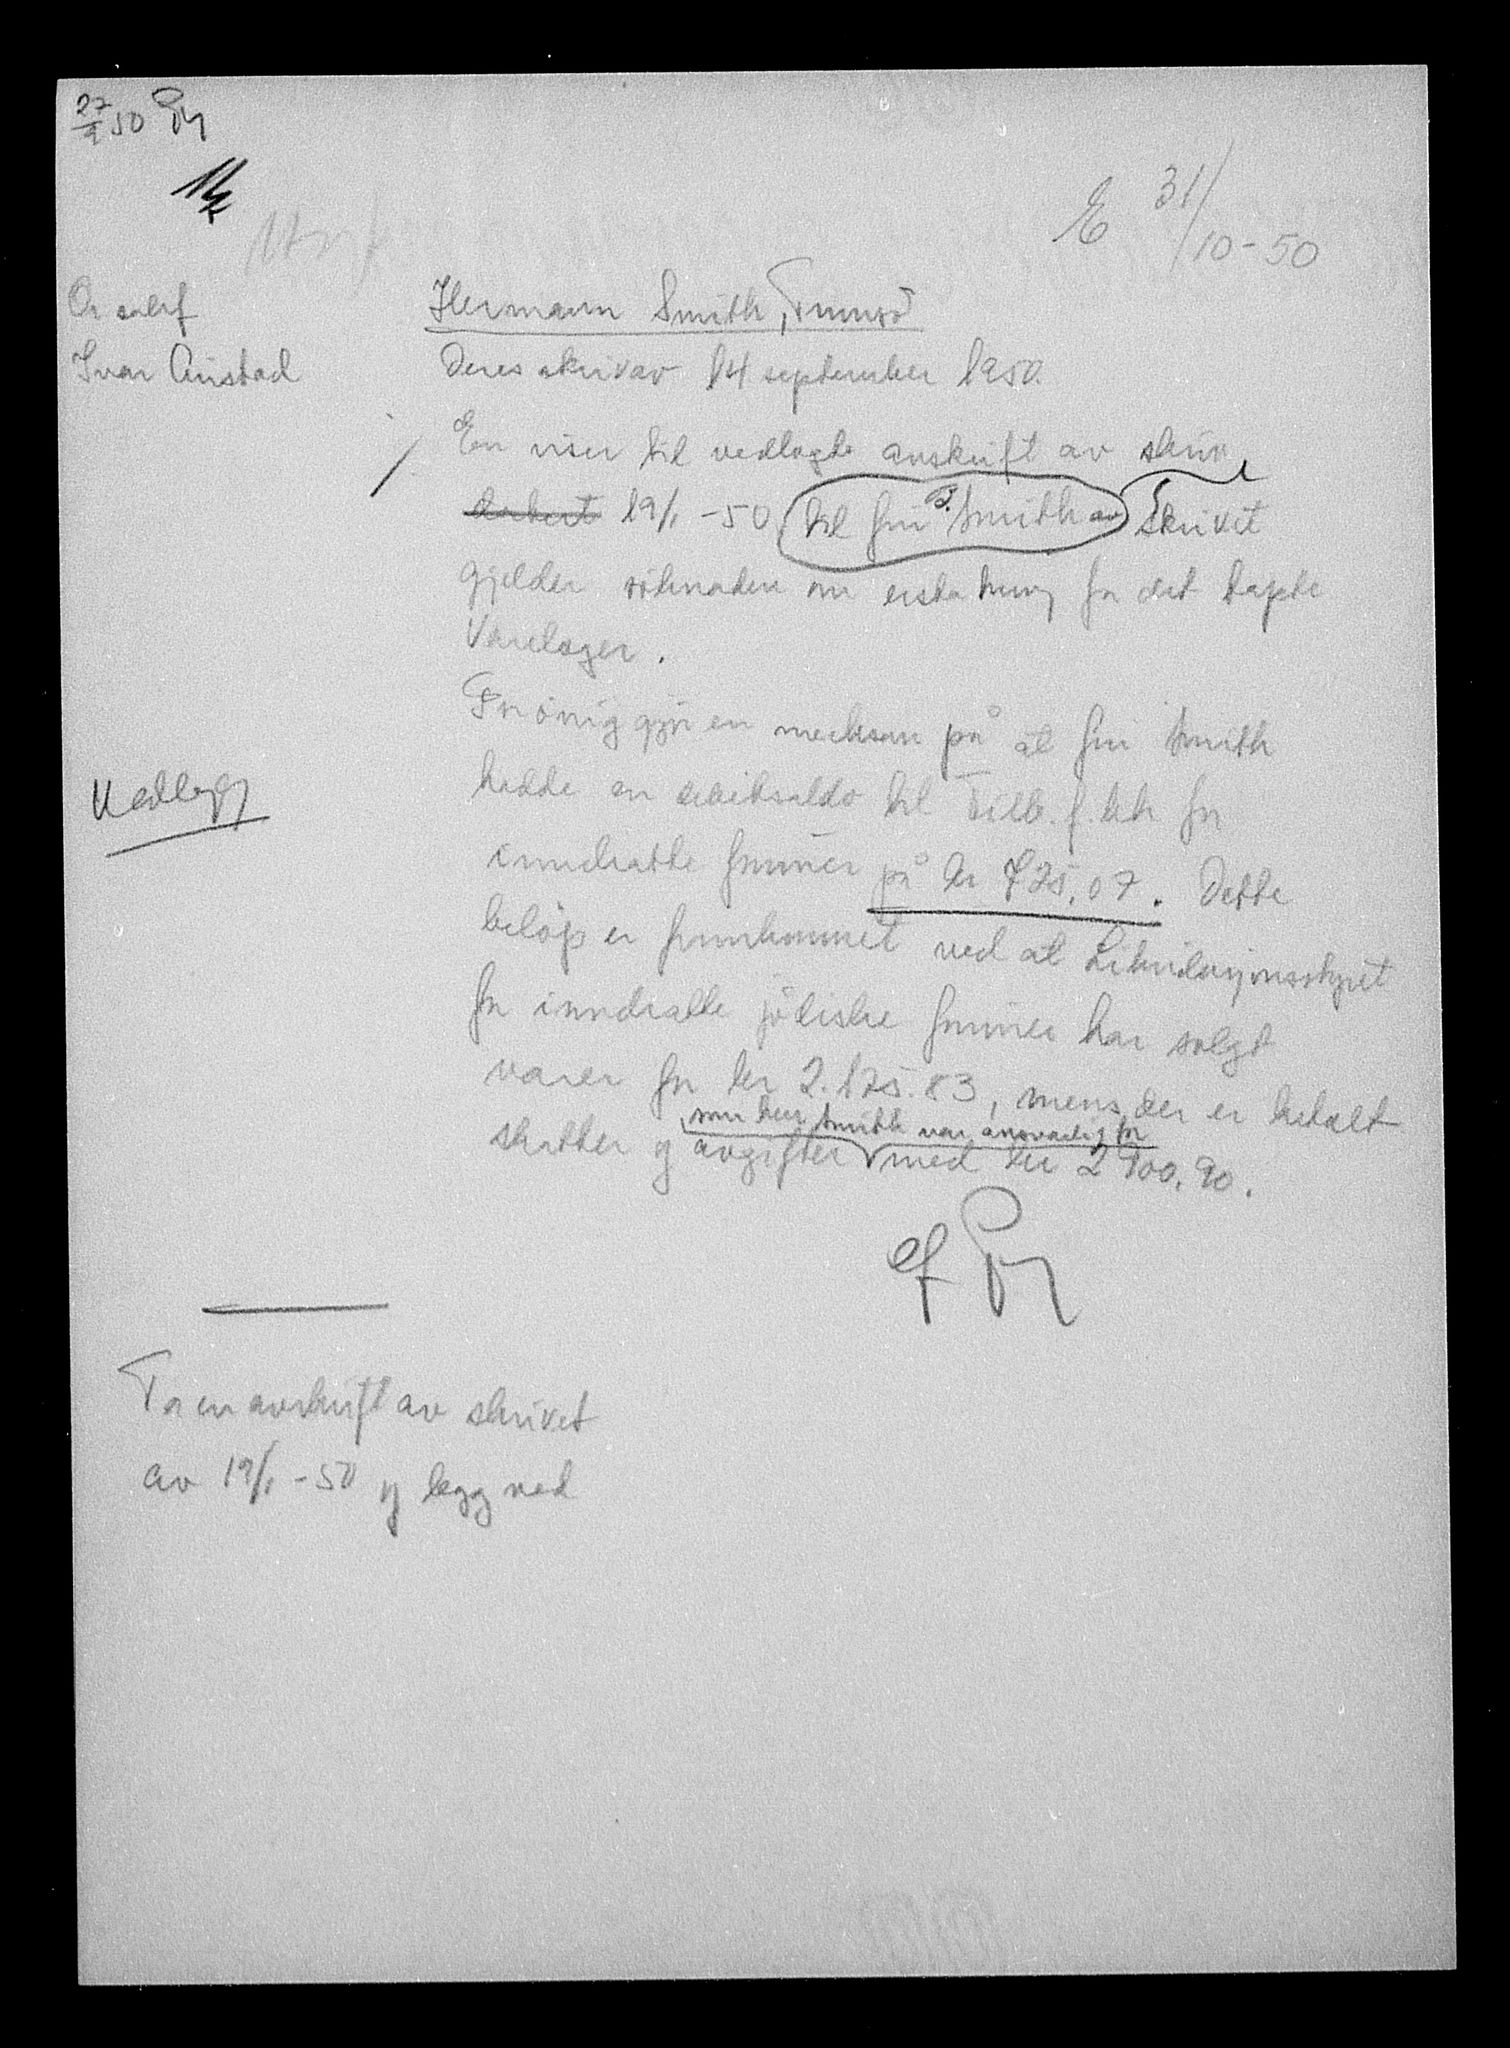 27/9 50
E 31/10-50
O.r.sakf
Ivar Aristad
Hermann Smith, Tromsö
Deres skriv av 14 september 1950.
En viser til vedlagte avskrift av skriv
datert 19/1 -50 til fru B. Smith av Skrivet
gjelder söknaden om erstatning for det tapte
Varelager.
Forövrig gjör en merksam på at fru Smith
hadde en debetsaldo til Tilb.f.ktr for
inndratte formuer på kr 725,07. Dette
belöp er fremkommet ved at Likvidasjonsstyret
for inndratte jödiske formuer har solgt
varer for kr 2.175.83, mens der er betalt
som herr Smith var ansvarlig for
skatter og avgifter med kr 2900,90.
Vedlegg
ef
Ta en avskrift av skrivet
av 19/1 -50 og legg ved